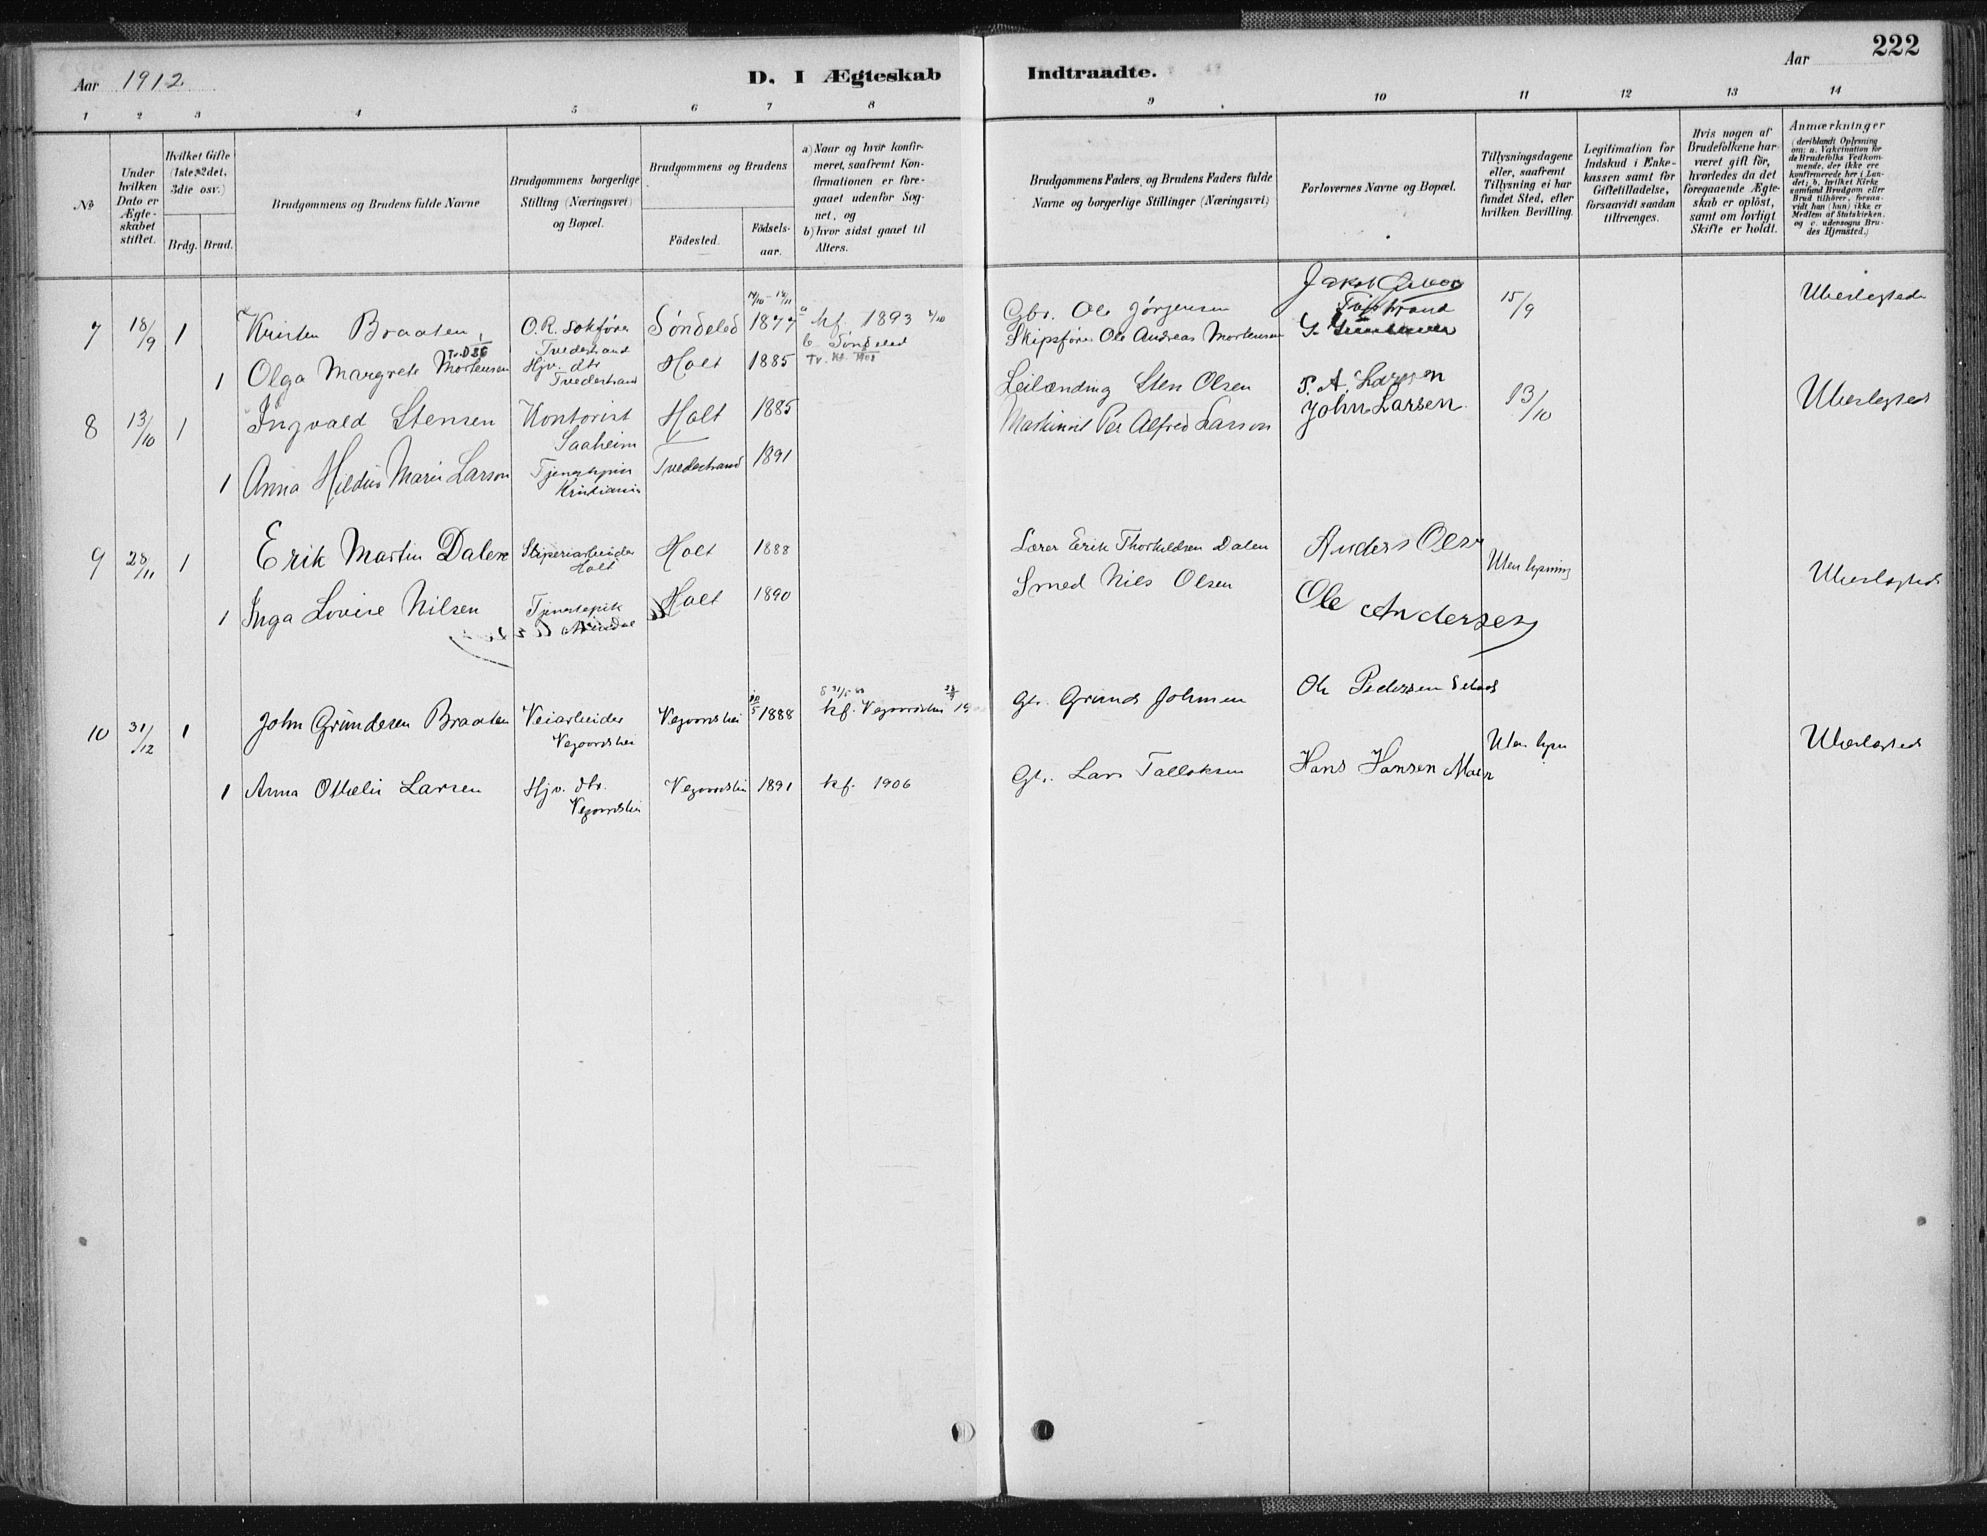 Aar 1912
D. I Ægteskab
Indtraadte.
Aar
222
1 2 3 4 5 6 7 8 9 10 11 12 13 14
No
Under
hvilken
Dato er
Ægte-
skabet
stiftet.
Hvilket Gifte
(1ste, 2det,
3die osv.)
Brdg. Brud.
Brudgommens og Brudens fulde Navne
Brudgommens borgerlige
Stilling (Næringsvei)
og Bopæl.
Brudgommens og Brudens
Födested.
Födsels-
aar.
a) Naar og hvor konfir-
meret, saafremt Kon-
firmationen er fore-
gaaet udenfor Sog-
net, og
b) hvor sidst gaaet til
Alters.
Brudgommens Faders og Brudens Faders fulde
Navne og borgerlige Stillinger (Næringsvei)
Forlovernes Navne og Bopæl.
Tillysningsdagene
eller, saafremt
Tillysning ei har
fundet Sted, efter
hvilken Bevilling.
Legitimation for
Indskud i Enke-
kassen samt for
Giftetilladelse,
forsaavidt saadan
tiltrænges.
Hvis nogen af
Brudefolkene har
været gift för,
hvorledes da det
foregaaende Ægte-
skab er oplöst,
samt om lovligt
Skifte er holdt.
Anmærkninger
(deriblandt Oplysning
om: a. Vakcination for
de Brudefolks Vedkom-
mende, der ikke ere
konfirmerede her i Lan-
det; b. hvilket Kirke
samfund Brudgom eller
Brud tilhörer, forsaa-
vidt han (hun) ikke er
Medlem af Statskirken,
og c. udensogns Bru-
des Hjemsted.)
7 18/9 1 Kristen Braaten O.R. sakfører Tvedestrand Søndeled 1877 a kf. 1893 b Søndeled Gbr. Ole Jørgensen 15/9 Ubeslegtede
1 Olga Margrete Mortensen Hjv. dtr Tvedestrand Holt 1885 Skipsfører Ole Andreas Mortensen
8 13/10 1 Ingvald Stensen Kontorist Saaheim Holt 1885 Leilænding Sten Olsen P. A. Larsson 13/10 Ubeslegtede
1 Anna Hildus Marie Larson Tjenestepike Kristiania Tvedestrand 1891 Maskinist Per Alfred Larsson John Larsen
9 28/11 1 Erik Martin Dalene Sliperiarbeider Holt Holt 1888 Lærer Erik Thorkildsen Dalen Anders Olsen Uten lysning Ubeslegtede
1 Inga Lovise Nilsen Tjenestepik Arendal Holt 1890 Smed Nils Olsen Ole Andersen
10 31/12 1 John Grundesen Braaten Veiarbeider Vegaardshei Vegaardshei 1888 kf. Vegaardshei Gbr. Grunde Johnsen Ole Pedersen Uten lysn Ubeslegtede
1 Anna Otthelie Larsen Hjv. dtr. Vegaardshei Vegaardshei 1891 kf. 1906 Gbr. Lars Tallaksen Hans Hansen Moen